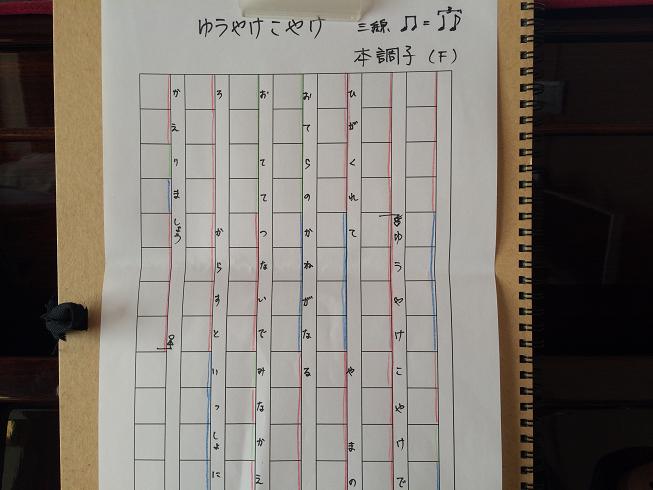 ゆうやけこやけ
三線 ♫ = ♩♪ 3
本調子 (F)
ゆうやけこやけで
ひがくれて やまの
おてらのかねがなる
おててつないでみなかえ
ろ からすといっしょに
かえりましょう